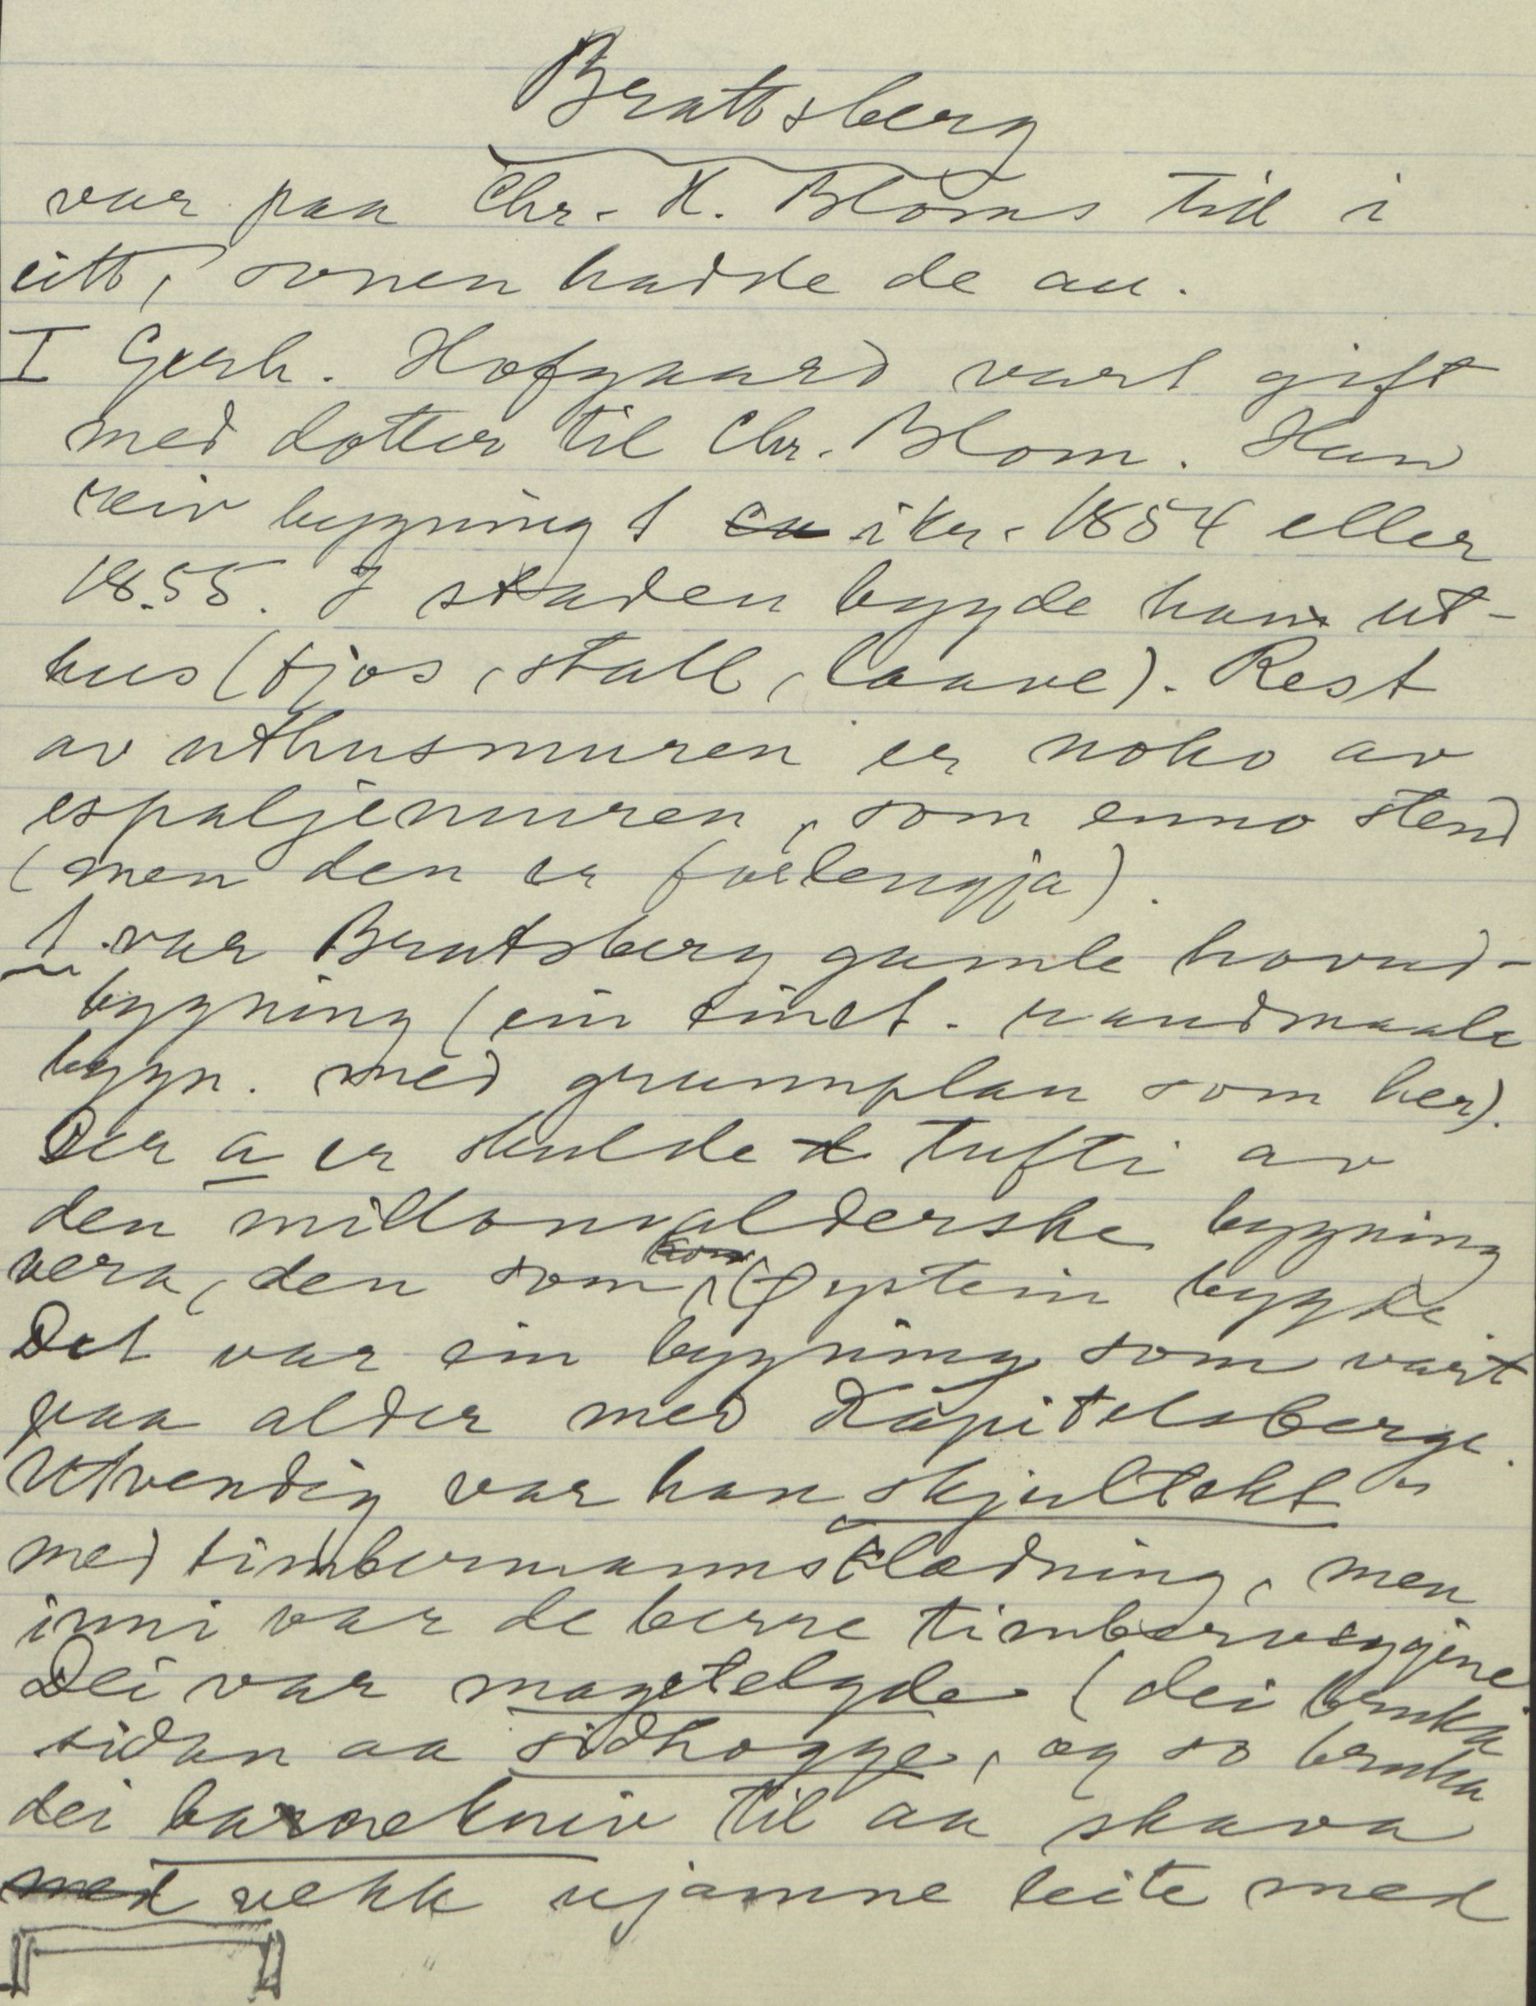 Brattsberg
var paa Chr. H. Bloms tid i
eitt, sonen hadde de au.
I Gerh. Hofgaard vart gift
med dotter til Chr. Blom. Han
reiv bygning 1 i kr. 1854 eller
1855. I staden bygde han ut-
hus (fjos, stall, laave). Rest
av uthusmuren er noko av
espaljemuren, som enno stend
(men den er forlengja).
1 var Bratsberg gamle hovud-
bygning (ein einet. raudmaala
bygn. med grunnplan som her).
Der a er skulde tufti av
den millomalderske bygning
vera, den som Øystein bygde.
Det var ein bygning som vart
paa alder med Kapitelsberge.
Utvendig var han skjultekt
med timbermannsklædning, men
inni var de berre timberveggjine.
Dei var magetelgde (dei bruka
sidan aa sidhogge, og so bruka
dei barrekniv til aa skava
med vekk ujamne leite med